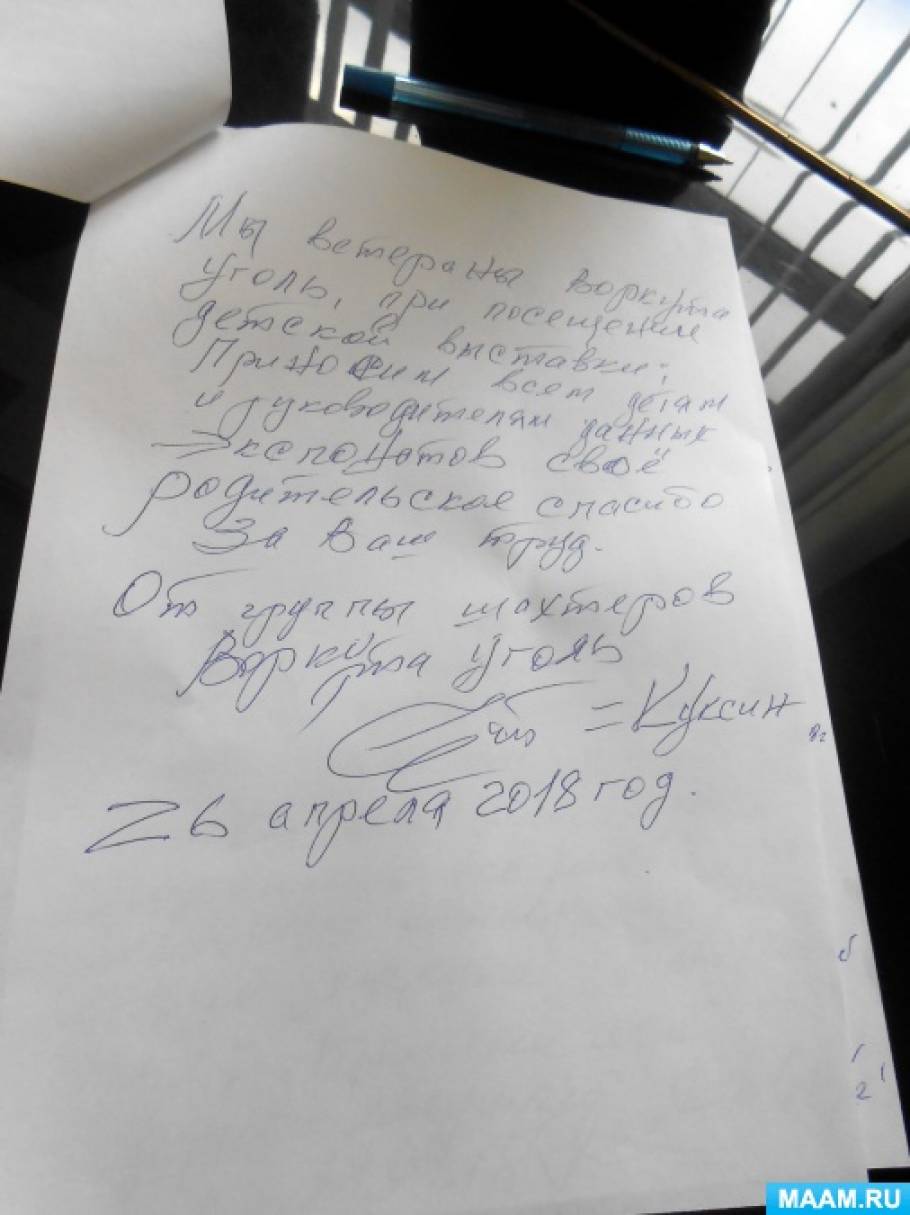 Мы ветераны Воркута
Уголь, при посещении
детской выставки;
Приносим всем детям
и руководителям данных
Экспонатов своё
родительское спасибо
За Ваш труд.
От группы шахтеров
Воркута Уголь
= Куксин
26 апреля 2018 год.
MAAM.RU